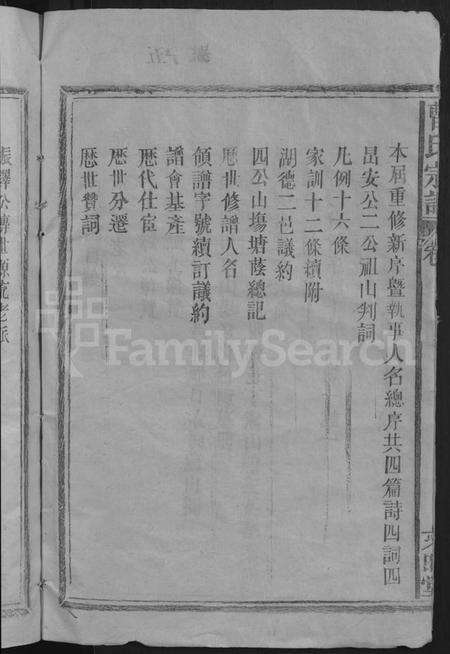 本屆重修新序暨執事人名總序共四篇詩四詞四
昷安公二公祖山判詞
凡例十六條
家訓十二條續附
湖德二邑議約
四公山塲塘蔭總記
歷世修譜人名
領譜字號續訂議約
譜會基產
歷代仕宦
歷世分遷
歷世贊詞
曹氏宗譜
卷
FamilySearch